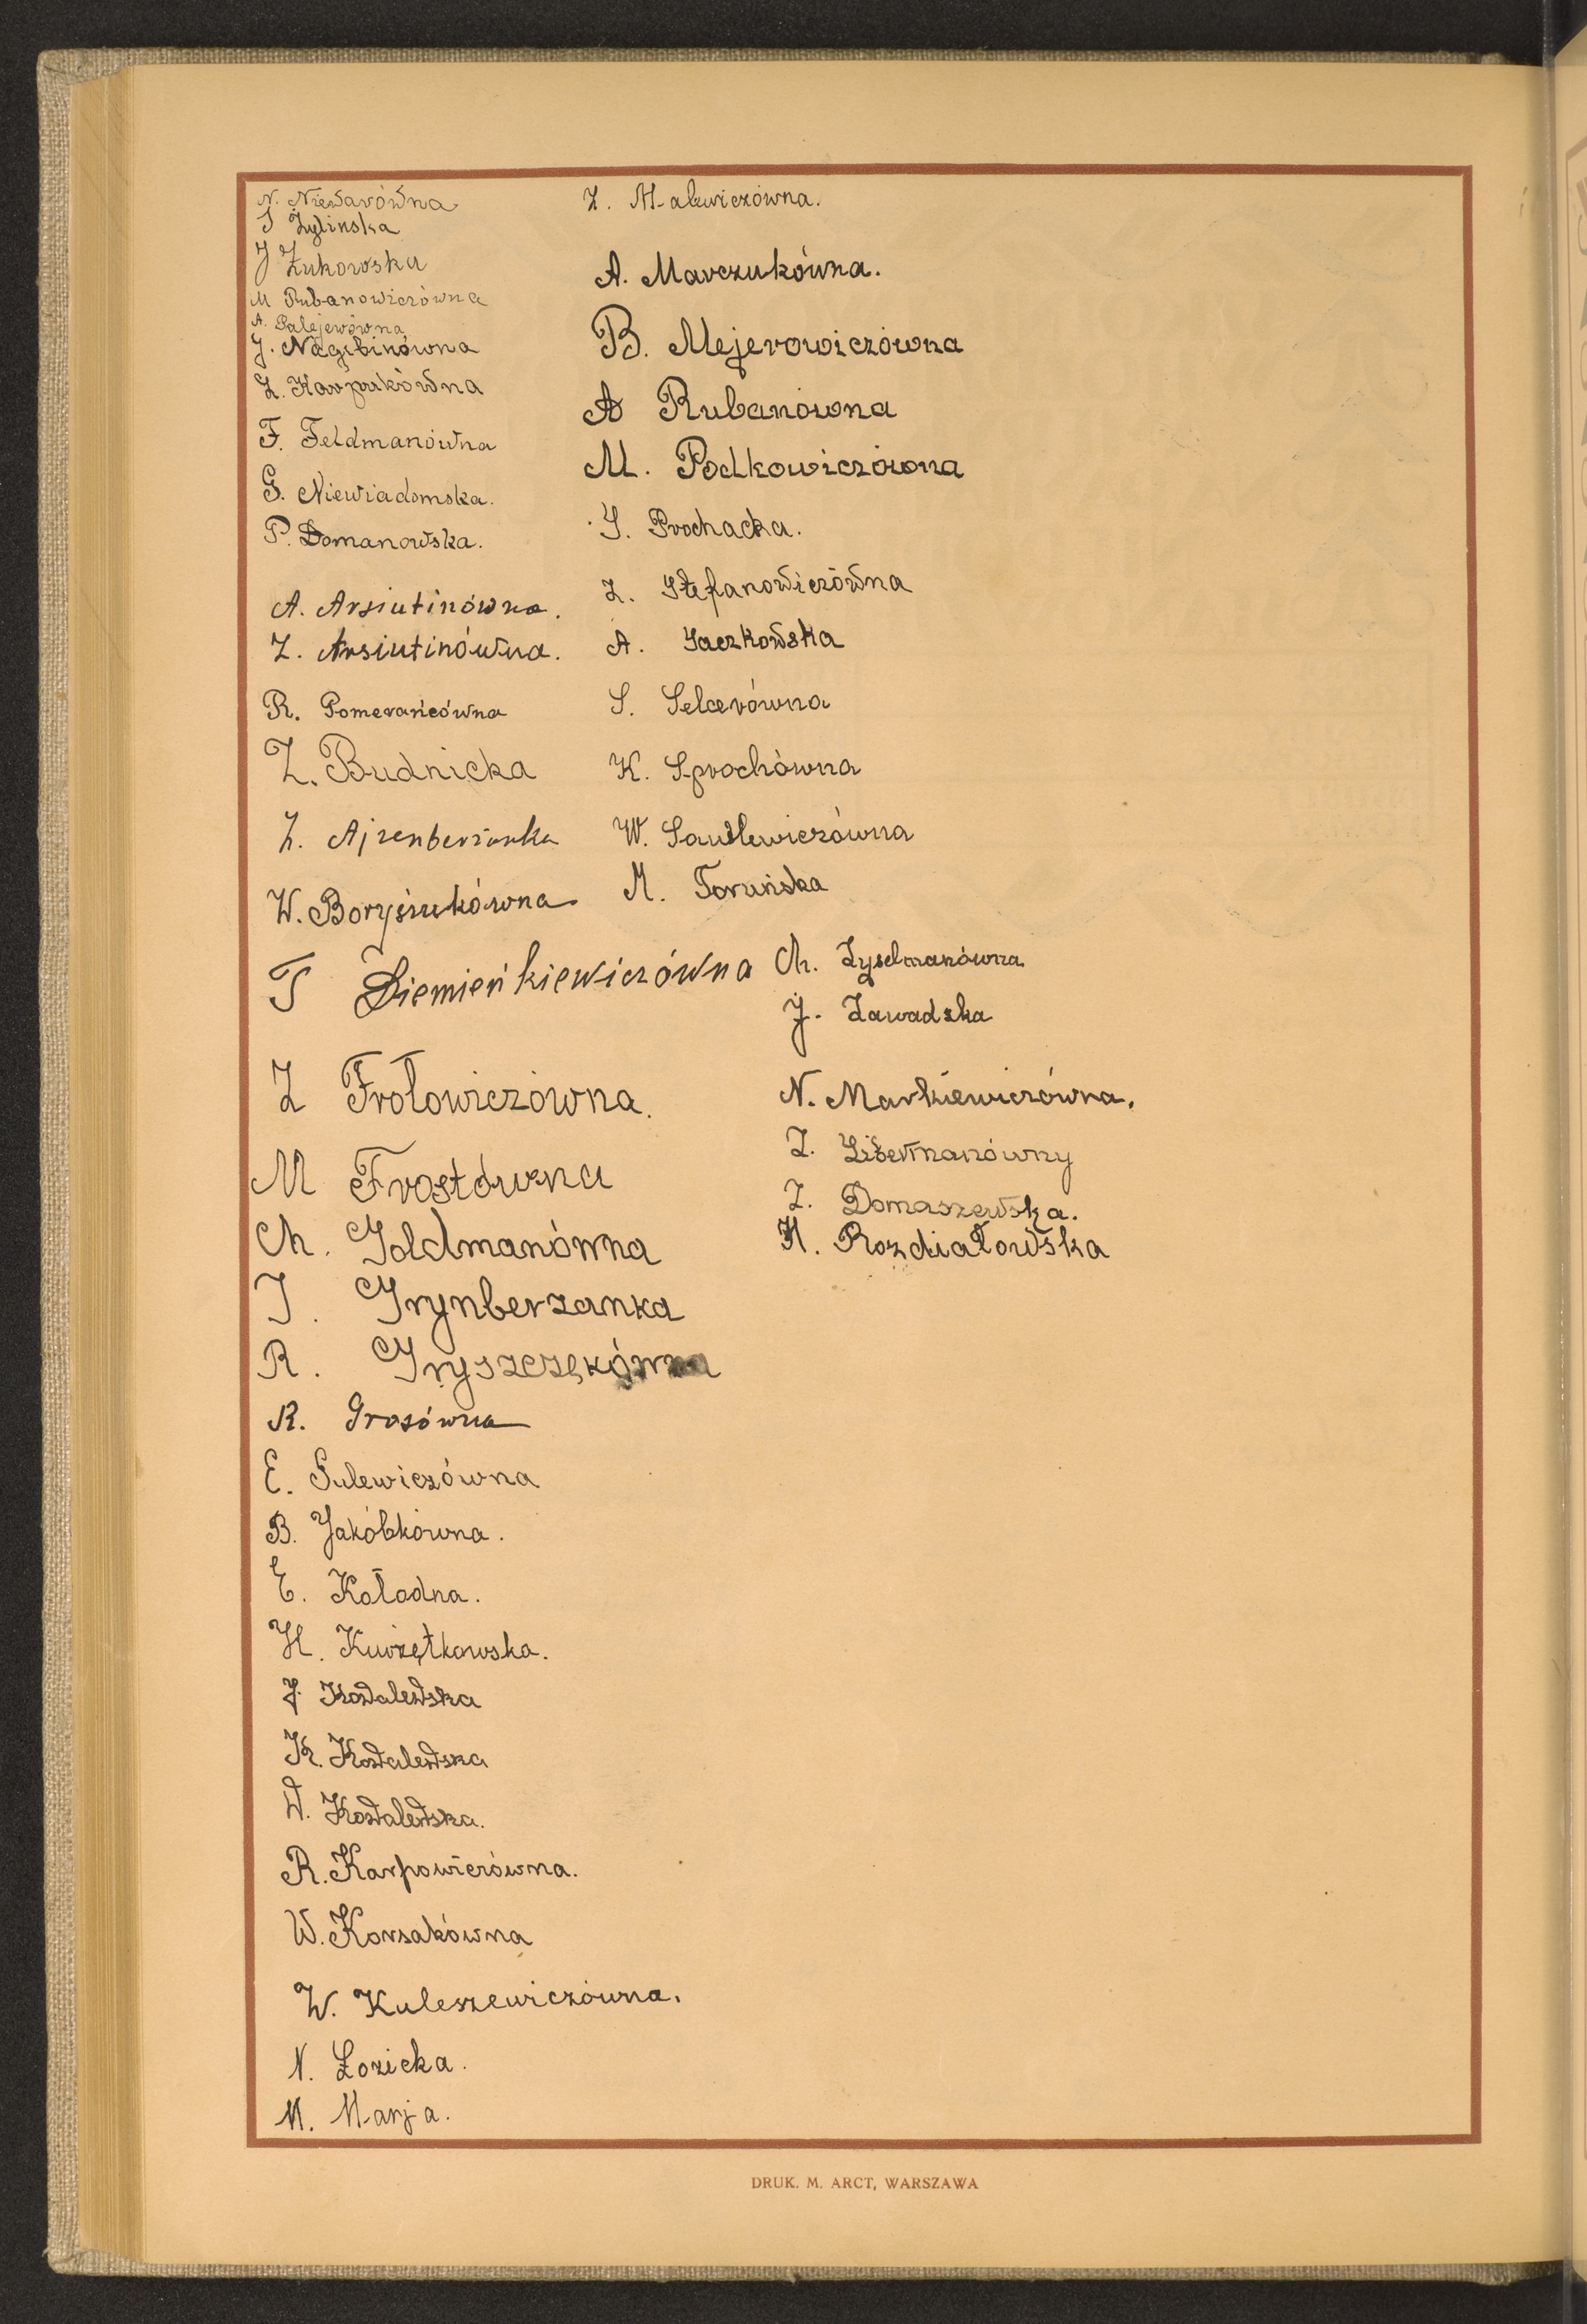 N. Niewarówna
S Żylinska
J Żukowska
M Rubanowiczówna
A. Salejewówna
J. Nagibinówna
Z. Karpukówna
F. Feldmanówna
G. Niewiadomska.
P. Domanowska.
A. Arsiutinówna.
Z. Arsiutinówna.
R. Pomerańcówna
Z. Budnicka
Z. Ajzenberżanka
W. Borysiukówna
T Ziemieńkiewiczówna
Z Frołowiczówna.
M Frostówna
Ch. Goldmanówna
I. Grynberzanka
R. Gryszczękówna
R. Grosówna
E. Sulewiczówna
B. Jakóbkówna.
E. Kołodna.
H. Kurzętkowska.
J. Kowalewska
K. Kowalewska
W. Kowalewska.
R. Karpowiczówna.
W. Korsakówna
W. Kuleszewiczówna.
N. Łozicka.
M. Marja.
Z. Malewiczówna.
A. Marczukówna.
B. Mejerowiczówna
A Rubanówna
M. Podkowiczówna
S. Prochacka.
Z. Stefanowiczówna
A. Saczkowska
S. Selcerówna
K. Sprochówna
W. Sawlewiczówna
M. Toruńska
Ch. Zyselmanówna
J. Zawadzka
N. Markiewiczówna.
Z. Libermanówny
Z. Domaszewska.
H. Rozdiałowska
DRUK. M. ARCT, WARSZAWA